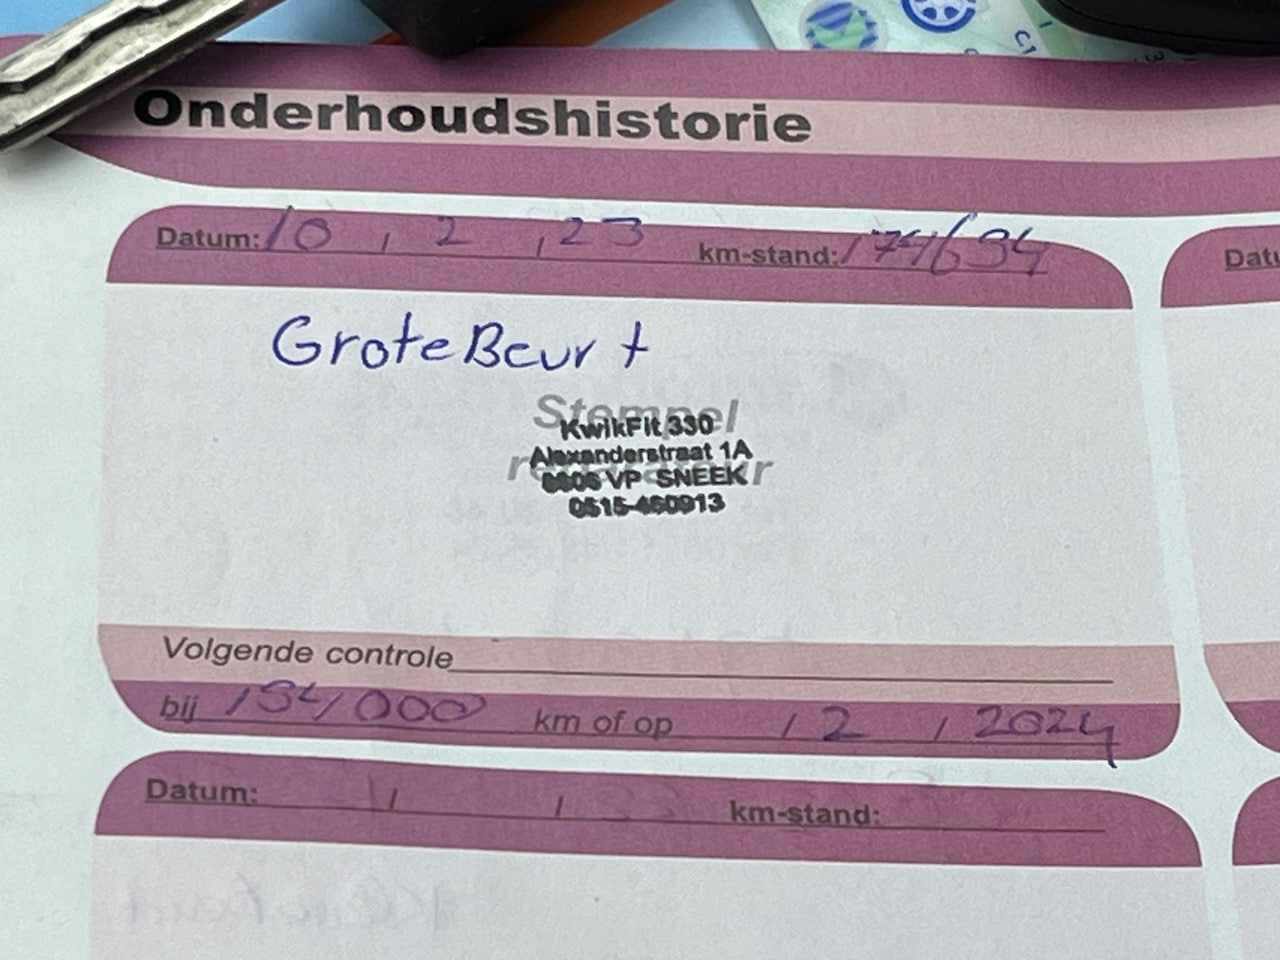 Onderhoudshistorie
Datum: 10 / 2 / 23 km-stand: 174694
Datu
Grote Beurt
Stempel
reparateur
KwikFit 330
Alexanderstraat 1A
8606 VP SNEEK
0515-460913
Volgende controle
bij 194000 km of op / 2 / 2024
Datum: / / km-stand: